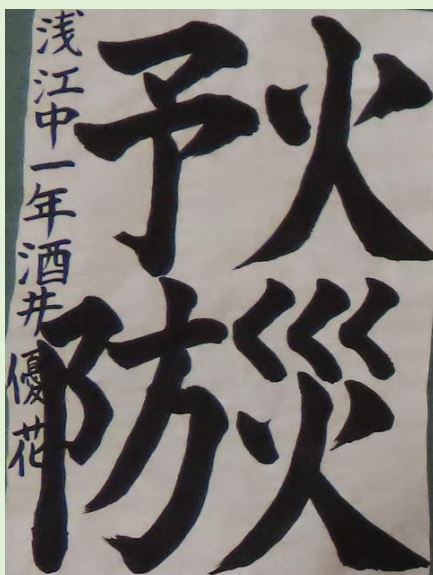 火災
予防
浅江中一年酒井優花